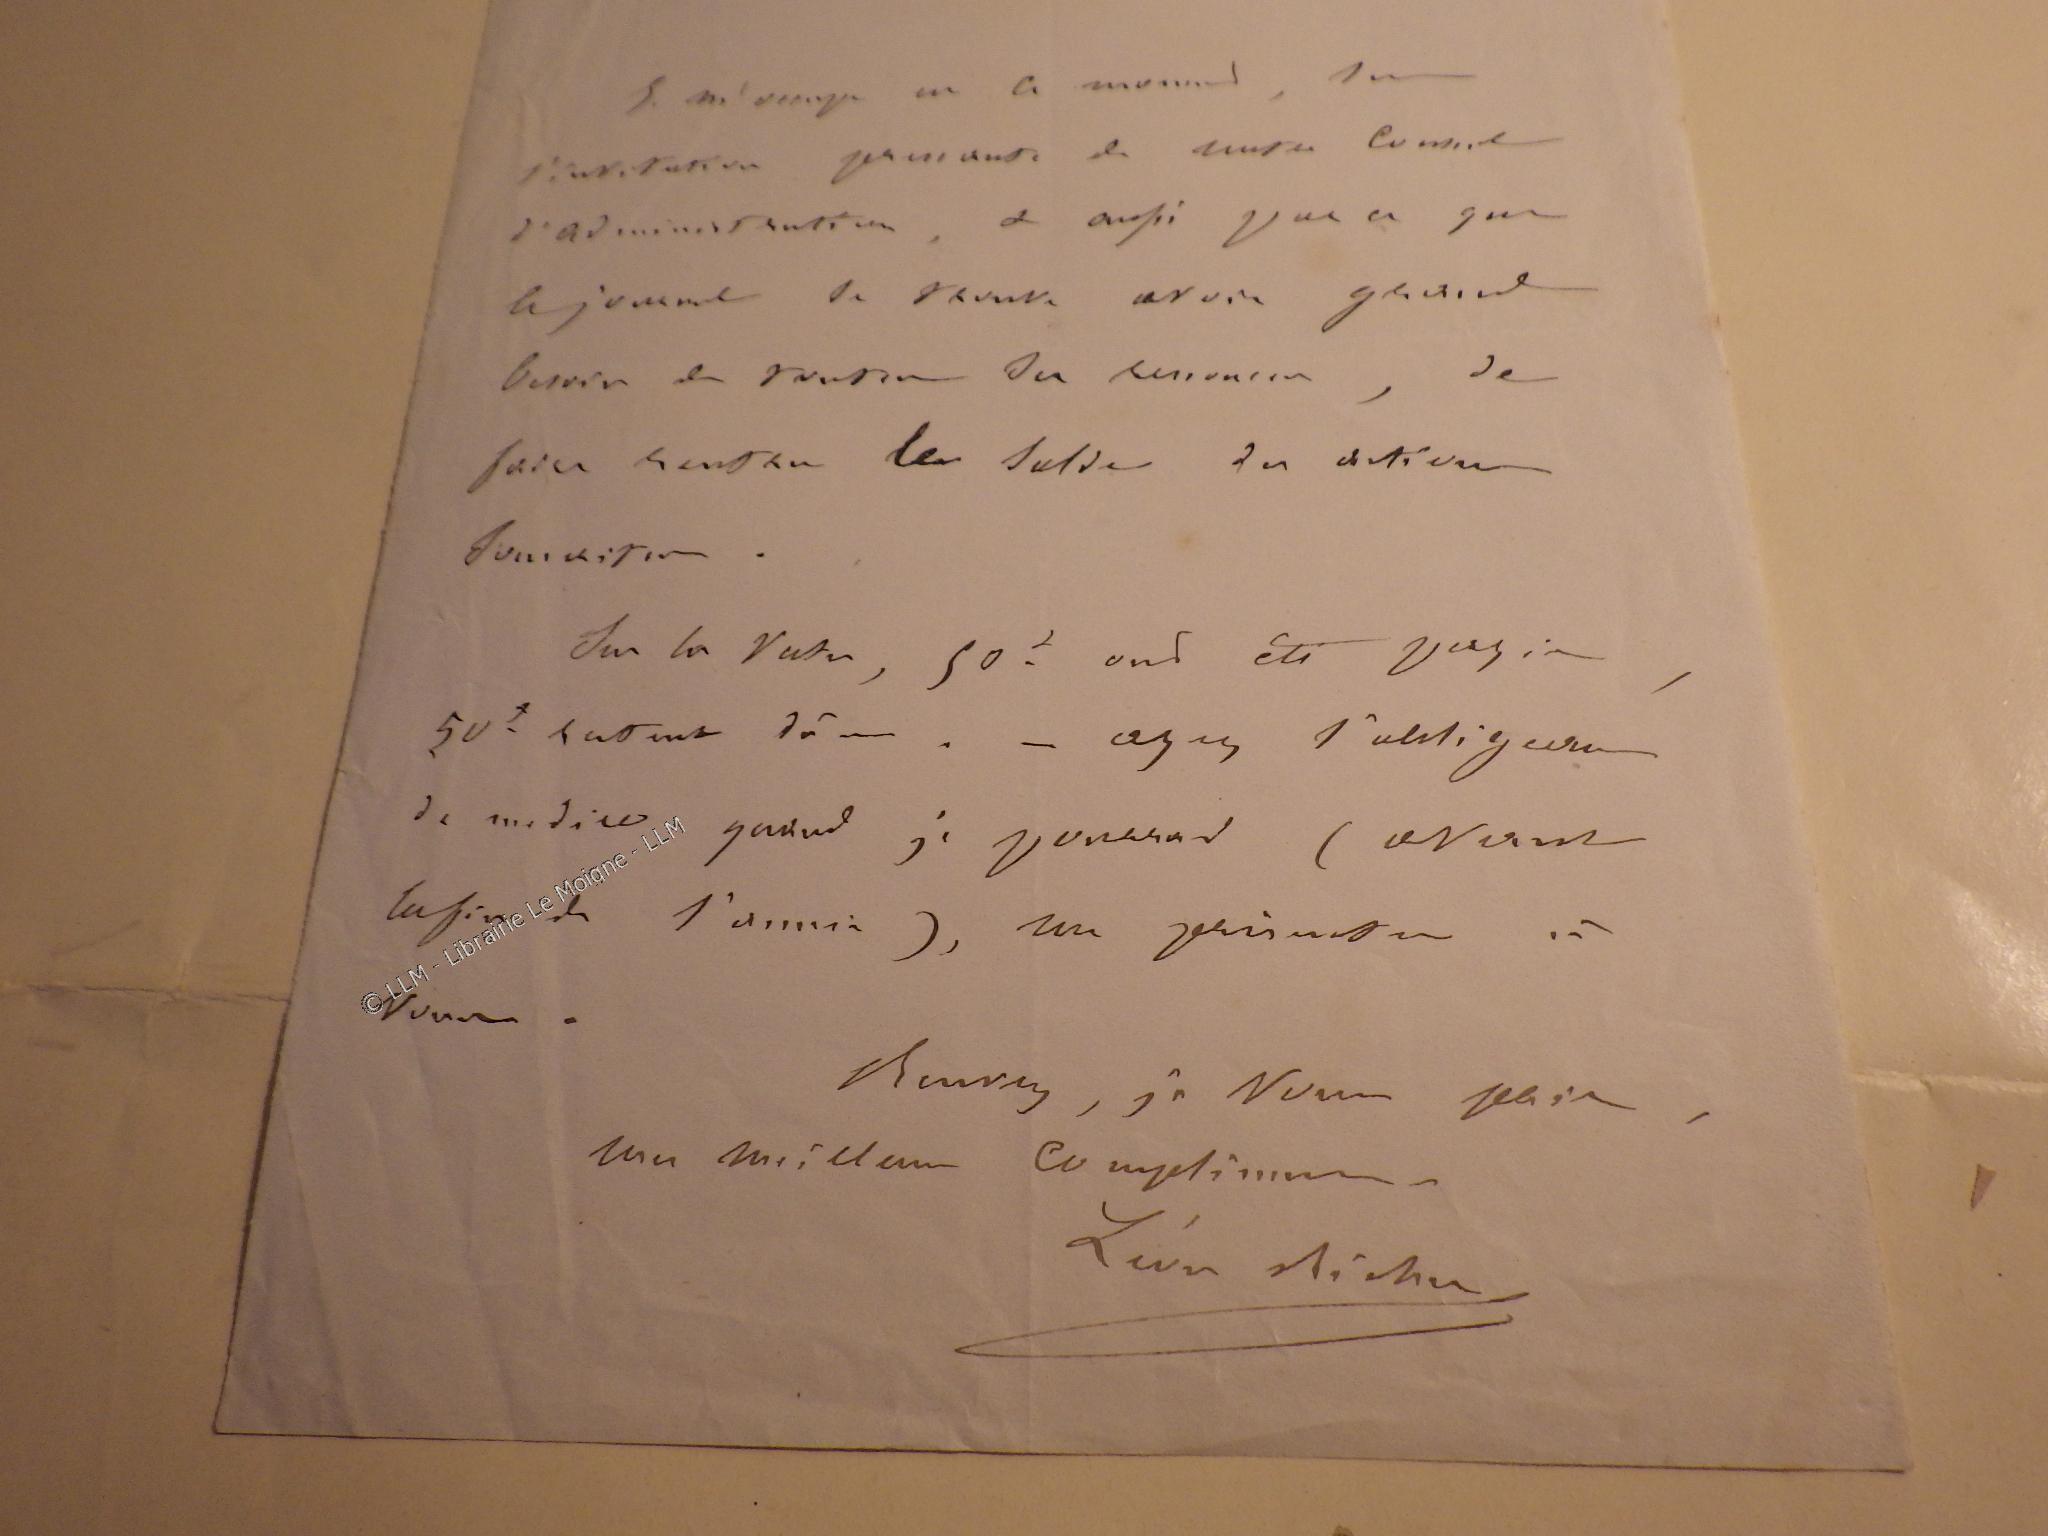 Je m'occupe en ce moment, sur
l'invitation pressante de notre Conseil
d'administration, & aussi parce que
le journal se trouve avoir grand
besoin de toutes ses ressources, de
faire rentrer le solde des actions
souscrites.
Sur la vôtre, 50 f. ont été payés,
50 f. restent dûs. — ayez l'obligeance
de me dire quand je pourrai (avant
la fin de l'année), me présenter à
vous.
Recevez, je vous prie,
mes meilleurs compliments.
Léon Richer
© LLM - Librairie Le Moigne - LLM